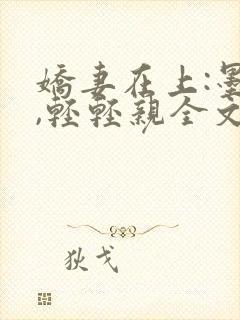 嬌妻在上:墨
,輕輕親全文
狄戈